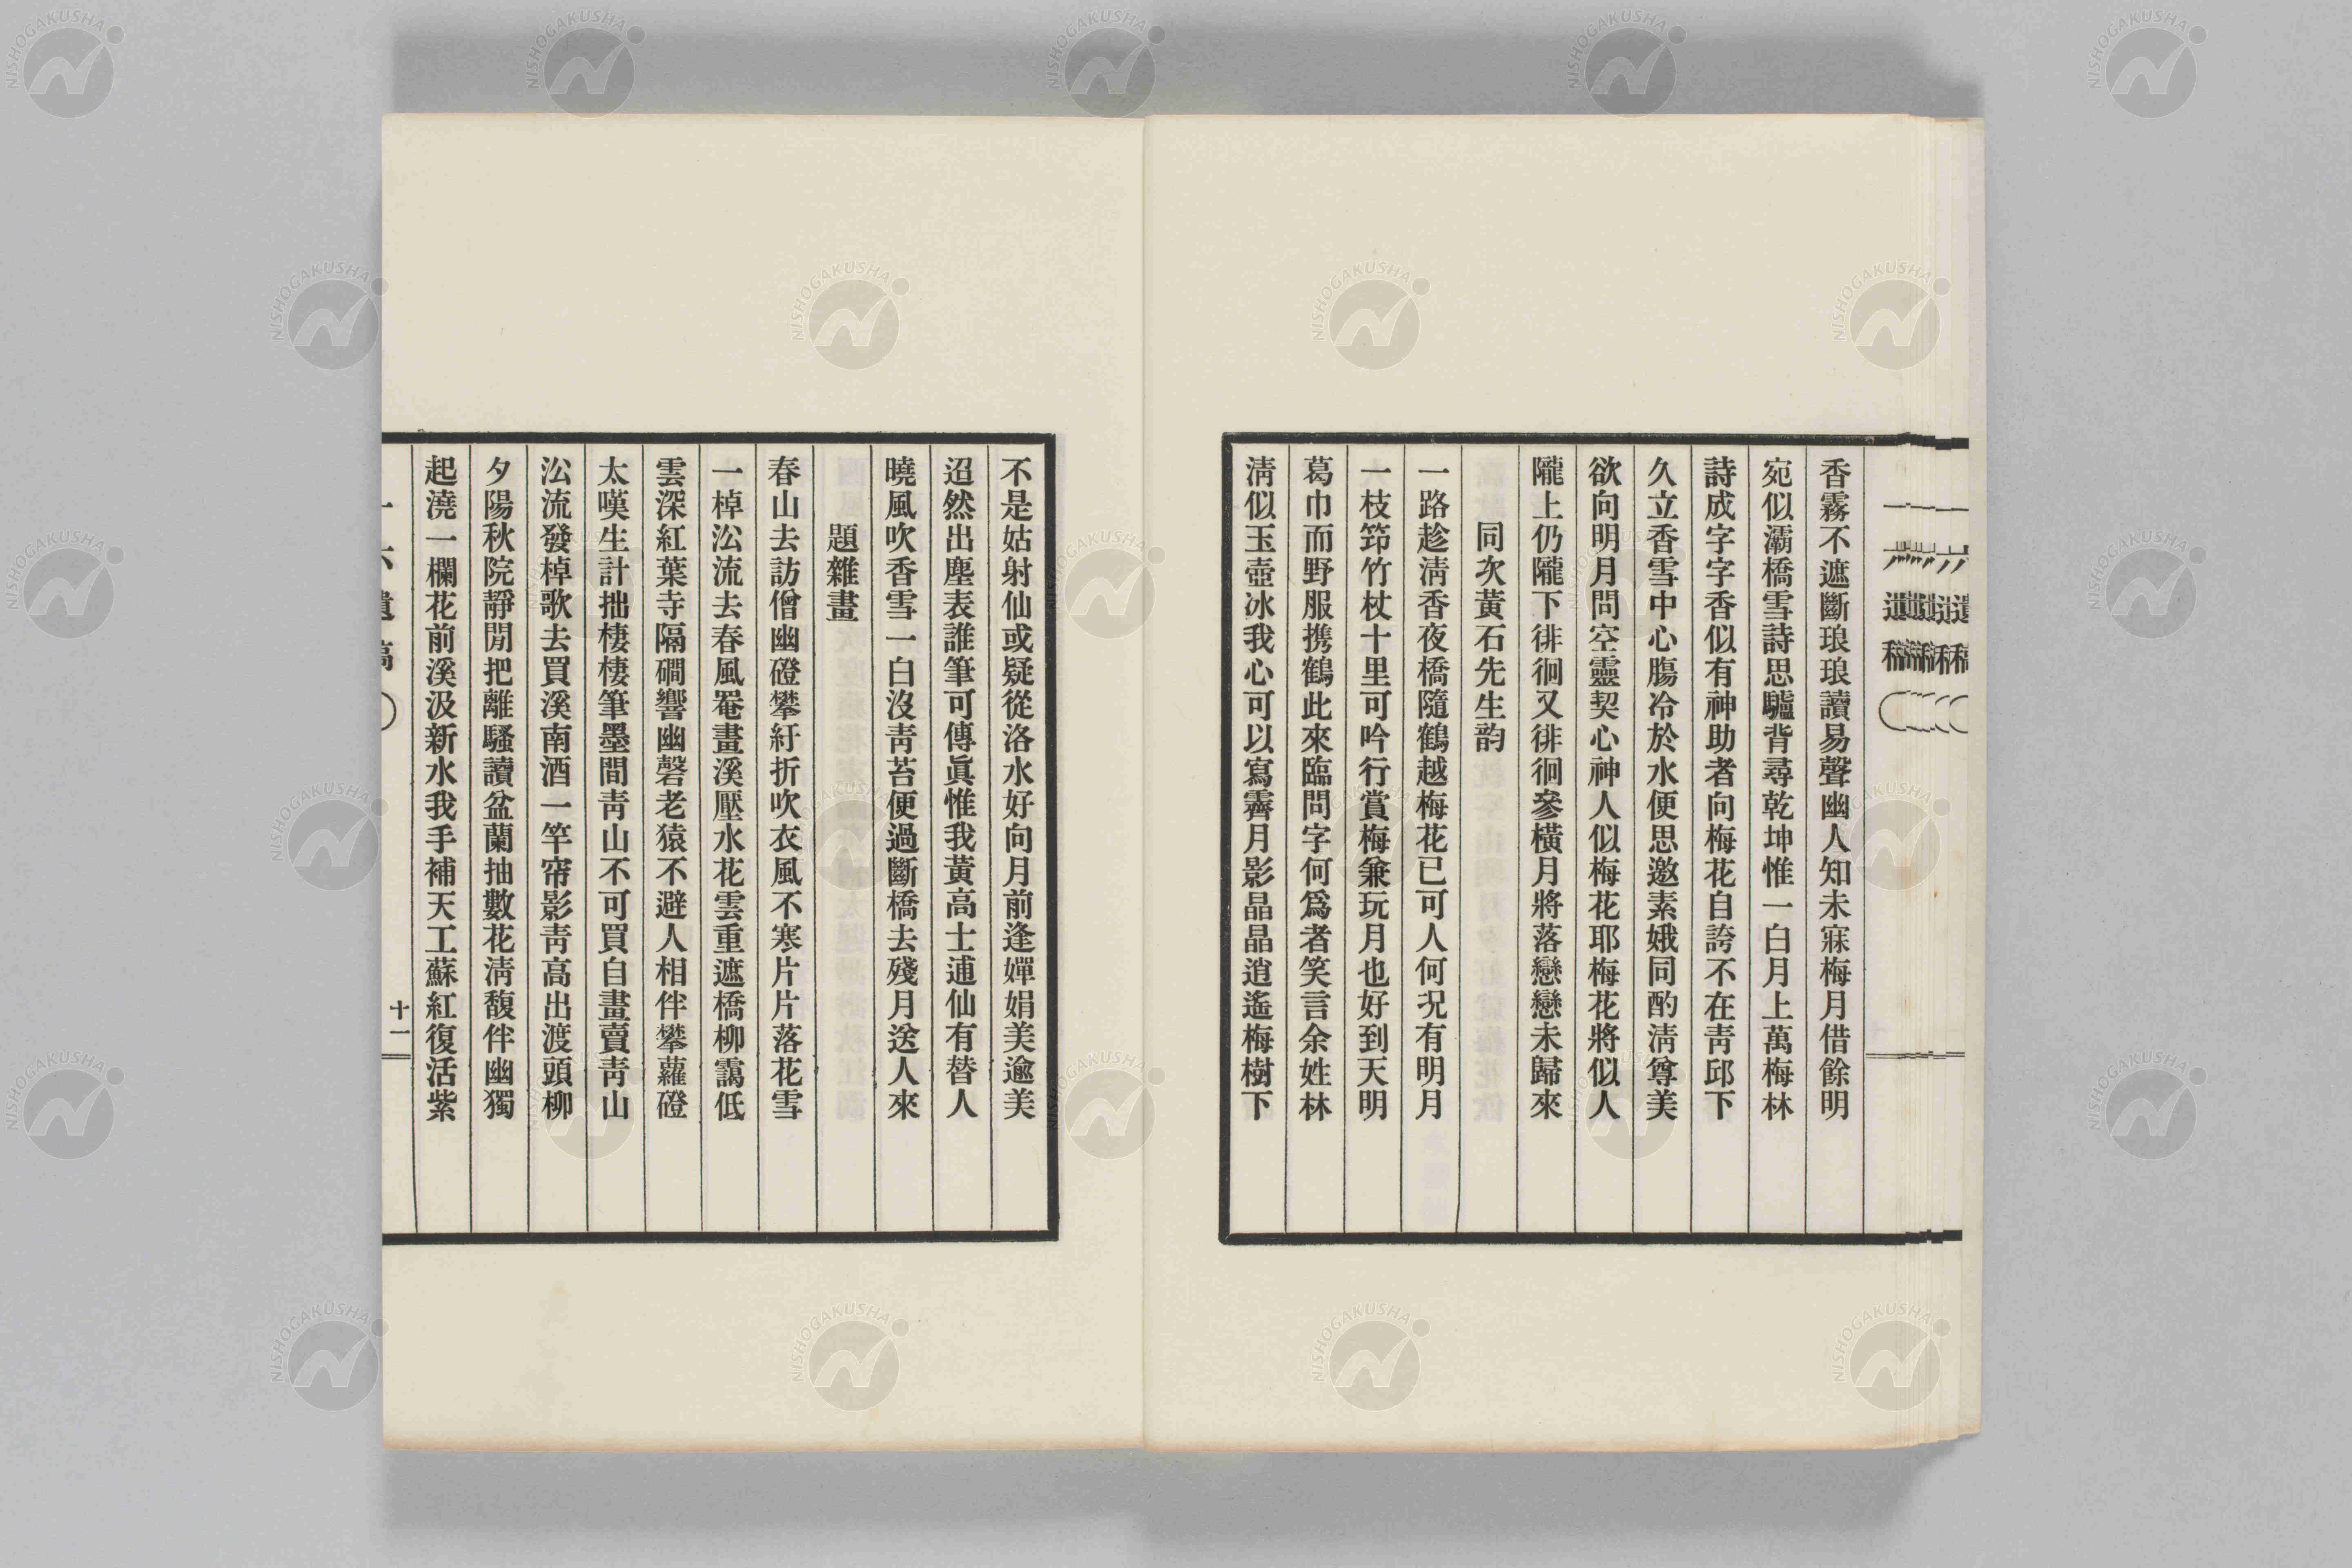 一六遺稿
香霧不遮斷琅琅讀易聲幽人知未寐梅月借餘明
宛似灞橋雪詩思驢背尋乾坤惟一白月上萬梅林
詩成字字香似有神助者向梅花自誇不在靑邱下
久立香雪中心膓冷於水便思邀素娥同酌淸尊美
欲向明月問空靈契心神人似梅花耶梅花將似人
隴上仍隴下徘徊又徘徊參橫月將落戀戀未歸來
同次黃石先生韵
一路趁淸香夜橋隨鶴越梅花已可人何况有明月
一枝笻竹杖十里可吟行賞梅兼玩月也好到天明
葛巾而野服携鶴此來臨問字何爲者笑言余姓林
淸似玉壺冰我心可以寫霽月影晶晶逍遙梅樹下
不是姑射仙或疑從洛水好向月前逢嬋娟美逾美
迢然出塵表誰筆可傳眞惟我黃高士逋仙有替人
曉風吹香雪一白沒靑苔便過斷橋去殘月送人來
題雜畫
春山去訪僧幽磴攀紆折吹衣風不寒片片落花雪
一棹㳂流去春風罨畫溪壓水花雲重遮橋柳靄低
雲深紅葉寺隔磵響幽磬老猿不避人相伴攀蘿磴
太嘆生計拙棲棲筆墨間靑山不可買自畫賣靑山
㳂流發棹歌去買溪南酒一竿帘影靑高出渡頭柳
夕陽秋院靜閒把離騷讀盆蘭抽數花淸馥伴幽獨
起澆一欄花前溪汲新水我手補天工蘇紅復活紫
一六遺稿
十一
NISHOGAKUSHA